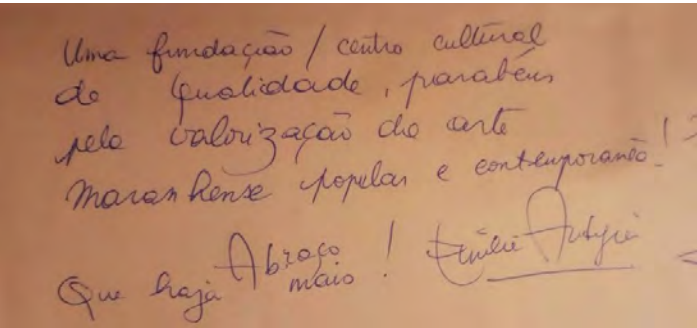 Uma fundação / centro cultural
de qualidade, parabéns
pela valorização da arte
maranhense popular e contemporanêa!
Abraço !
Que haja mais